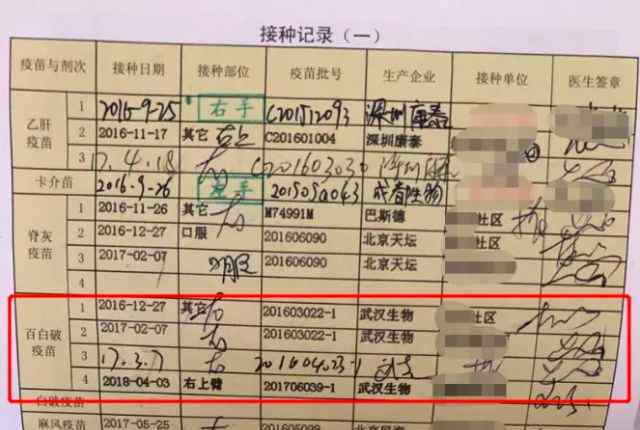 接种记录（一）
疫苗与剂次 接种日期 接种部位 疫苗批号 生产企业 接种单位 医生签章
乙肝疫苗
1 2016-9-25 右手 C201512093 深圳康泰
2 2016-11-17 其它 右上 C201601004 深圳康泰
3 17.4.18 右 C201603030 深圳康泰
卡介苗 2016.9.26 左手 201505a043 成都生物
脊灰疫苗
1 2016-11-26 其它 右 M74991M 巴斯德 社区
2 2016-12-27 口服 201606090 北京天坛
3 2017-02-07 口服 201606090 北京天坛
4
百白破疫苗
1 2016-12-27 其它 右 201603022-1 武汉生物 社区
2 2017-02-07 右 201603022-1 武汉生物
3 17.3.7 右 201604023-1 武生
4 2018-04-03 右上臂 201706039-1 武汉生物
白破疫苗
麻风疫苗 2017-05-25